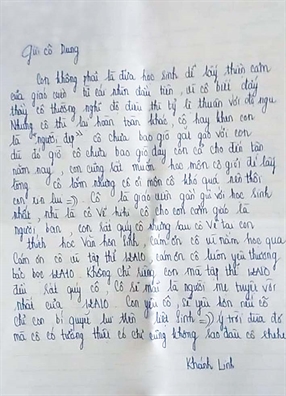 Gửi cô Dung
Con không phải là đứa học sinh dễ lấy thiện cảm
của giáo viên từ cái nhìn đầu tiên, đi cô biết đấy
thầy cô thường nghĩ đồ điêu thì tỷ lệ thuận với đồ ngu
Nhưng cô thì lại hoàn toàn khác, cô hay khen con
là "người đẹp" cô chưa bao giờ gắt gỏng với con
dù đó giờ cô chưa bao giờ dạy con cả cho đến tận
năm nay, con cũng rất muốn học môn cô giỏi để lấy
lòng cô lắm nhưng cô ơi môn cô khó quá nên thôi
con us lu =)) Cô là giáo viên gần gũi với học sinh
nhất, như là cô Vẽ nữa cô cho con cảm giác là
người bạn, con rất quý cô nhưng sau cô Vẽ tại con
thích học Văn hơn Sinh, cảm ơn cô vì năm học qua
Cảm ơn cô vì tập thể cảm ơn cô luôn yêu thương
bọc Không chỉ riêng con mà tập thể
đều rất quý cô Cô sẽ mãi là người mẹ tuyệt vời
nhất của Con yêu cô, sẽ yêu hơn nếu cô
chỉ con bí quyết lưu tiền lại Sinh =)) ý trời đưa đó
mà cô có tương thích có chê cũng không sao đâu cô hehe
Khánh Linh